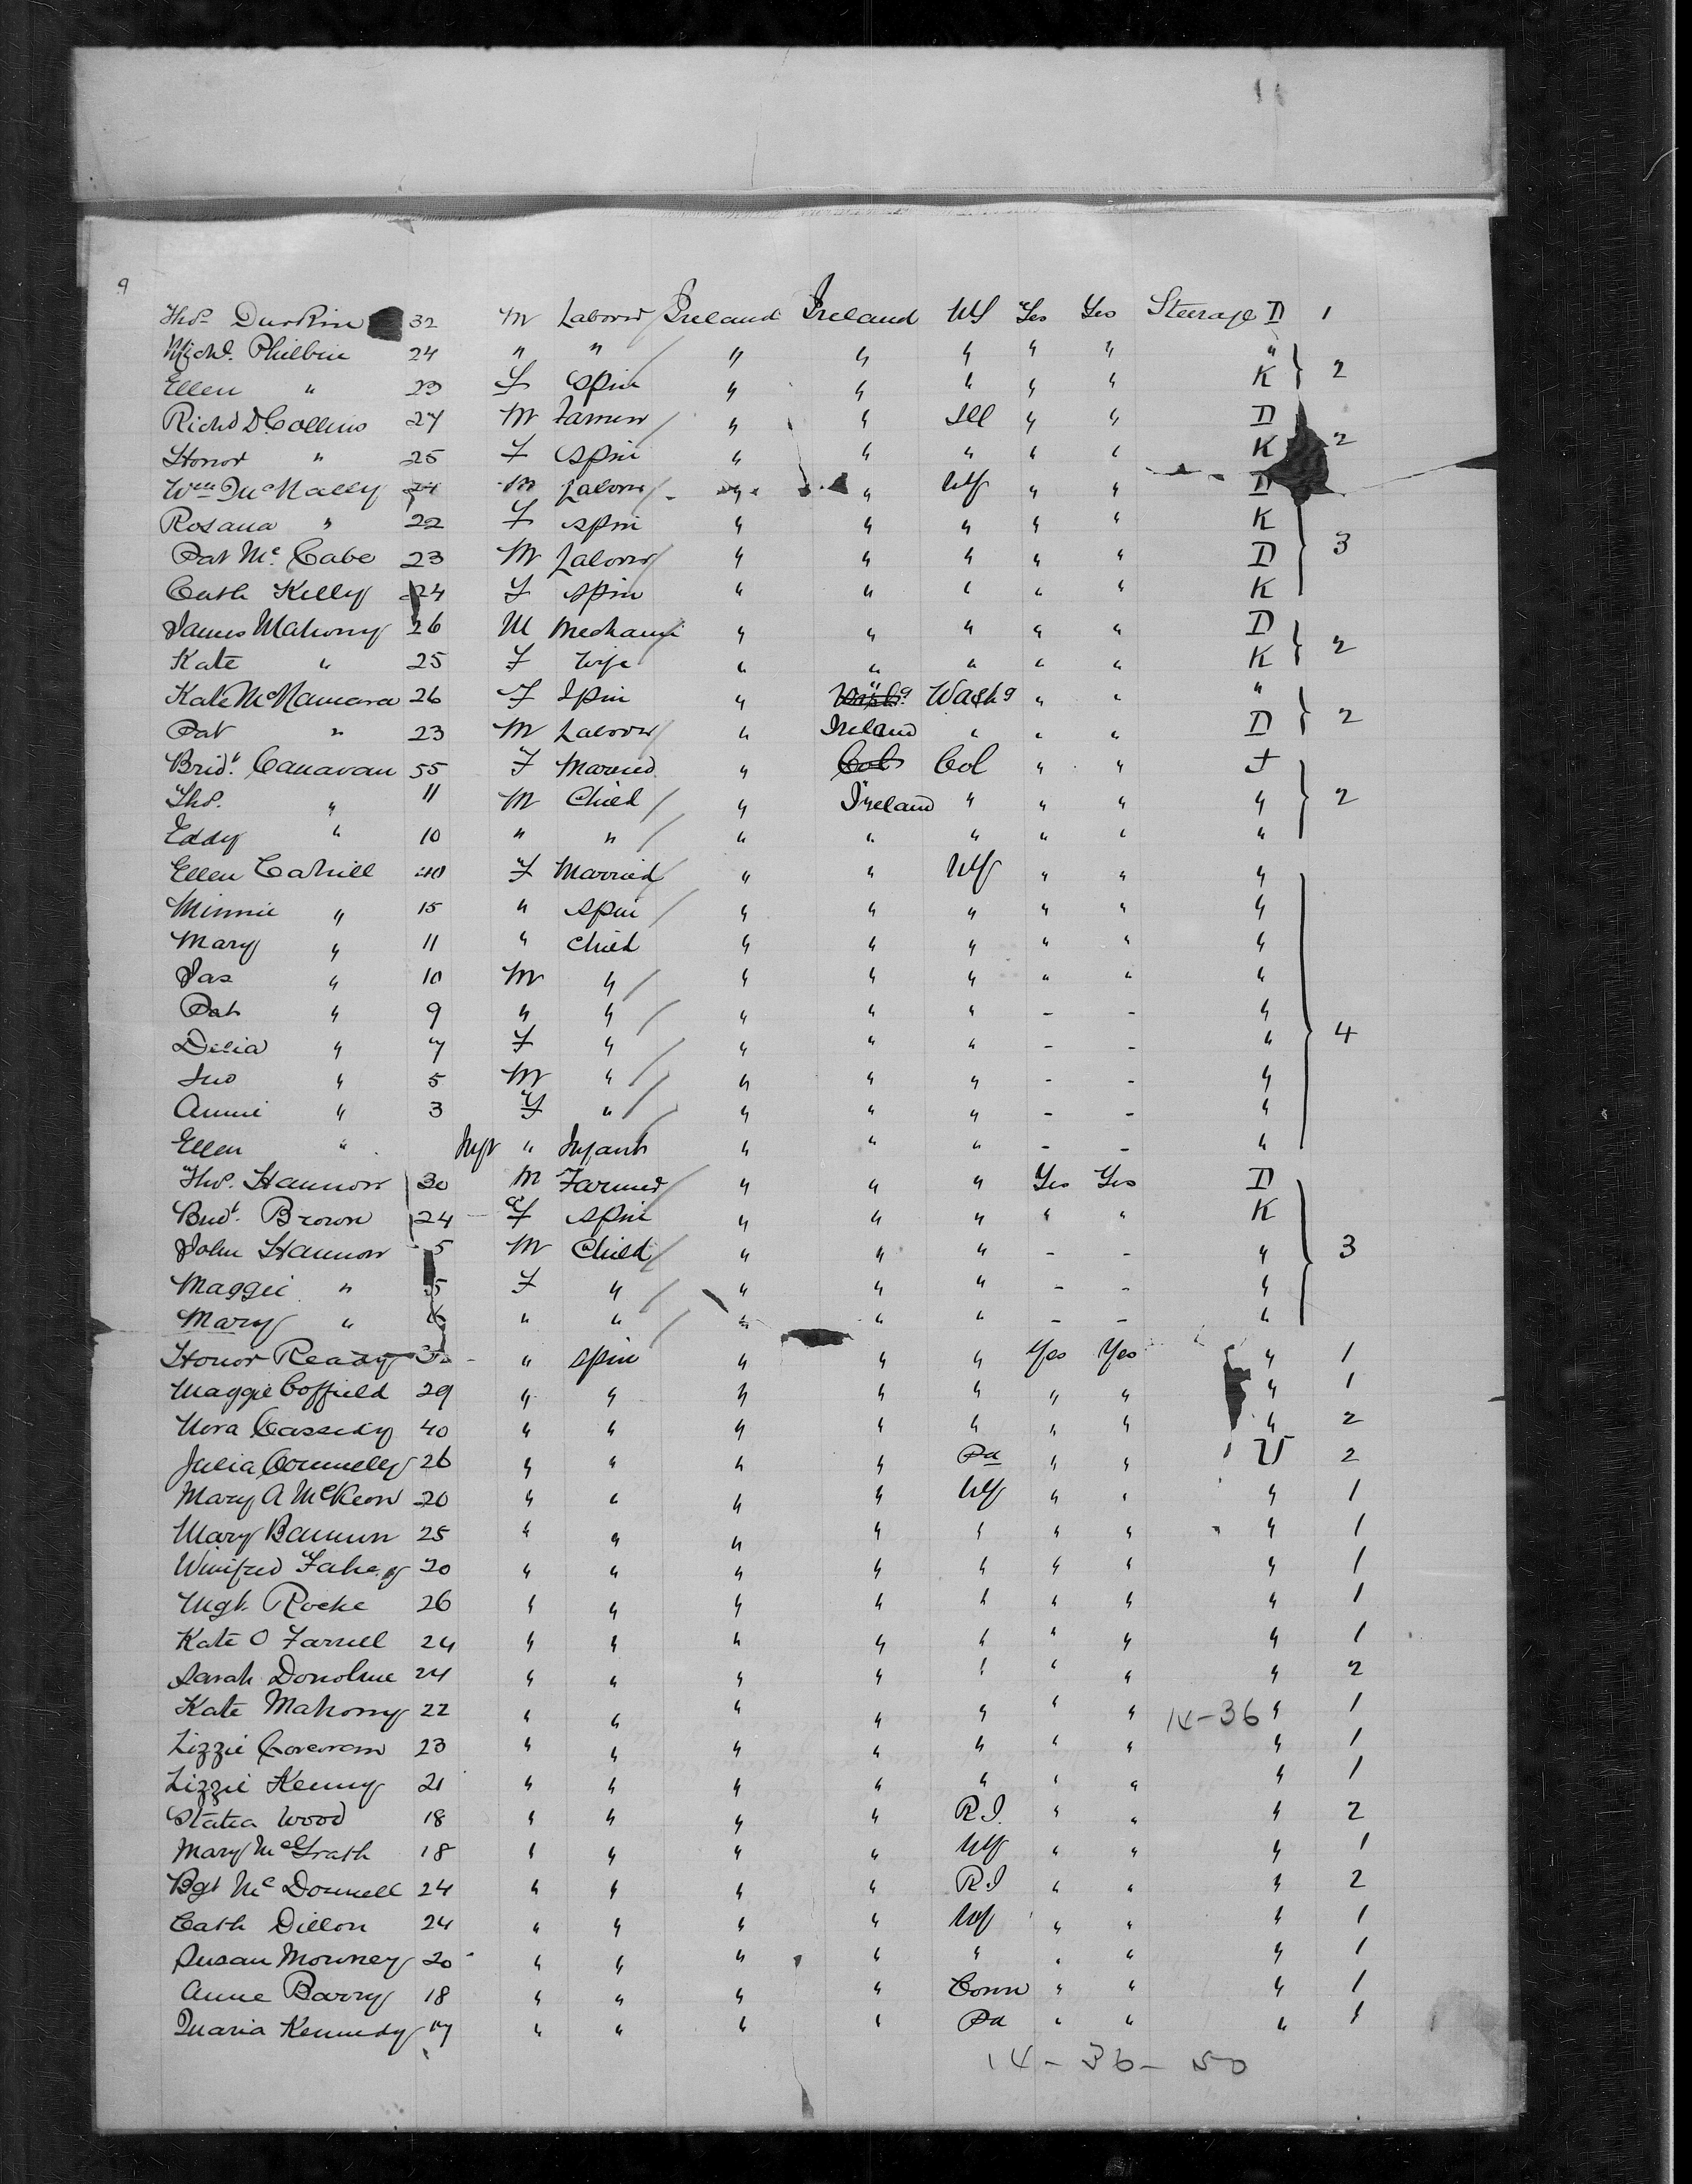 9
Thos. Durkin 32 M Laborer Ireland Ireland NY Yes Yes Steerage D 1
Michl. Philbin 24 " " " " " " " "
Ellen " 23 F Spin " " " " " K 2
Richd D. Collins 27 M Farmer " " Ill " " D
Honor " 25 F Spin " " " " " K 2
Wm McNally 24 M Laborer " " NY " " D
Rosana " 22 F Spin " " " " " K
Pat Mc. Cabe 23 M Laborer " " " " " D 3
Cath Kelly 24 F Spin " " " " " K
James Mahony 26 M Mechanic " " " " " D
Kate " 25 F Wife " " " " " K 2
Kate McNamara 26 F Spin " " Washg " " "
Pat " 23 M Laborer " Ireland " " " D 2
Bridt. Canavan 55 F Married " Col Col " "
Thos. " 11 M Child " Ireland " " " " 2
Eddy " 10 " " " " " " " "
Ellen Cahill 40 F Married " " NY " " "
Minnie " 15 " Spin " " " " " "
Mary " 11 " Child " " " " " "
Jas " 10 M " " " " " " "
Pat " 9 " " " " " - - "
Delia " 7 F " " " " - - " 4
Jno " 5 M " " " " - - "
Annie " 3 F " " " " - - "
Ellen " Inft " Infant " " " - - "
Thos. Hannon 30 M Farmer " " " Yes Yes D
Bridt. Brown 24 F Spin " " " " " K
John Hannon 5 M Child " " " - - " 3
Maggie " 5 F " " " " - - "
Mary " " " " " " - - "
Honor Ready " Spin " " " Yes Yes " 1
Maggie Coffield 29 " " " " " " " " 1
Nora Cassidy 40 " " " " " " " " 2
Julia Connelly 26 " " " " Pa " " U 2
Mary A McKeon 20 " " " " NY " " " 1
Mary Bannon 25 " " " " " " " " 1
Winifred Fahey 20 " " " " " " " " 1
Mgt. Roche 26 " " " " " " " " 1
Kate O Farrell 24 " " " " " " " " 1
Sarah Donohue 24 " " " " " " " " 2
Kate Mahony 22 " " " " " " " 14-36 " 1
Lizzie Corcoran 23 " " " " " " " " 1
Lizzie Kenny 21 " " " " " " " " 1
Statia Wood 18 " " " " R.I. " " " 2
Mary McGrath 18 " " " " NY " " " 1
Bgt Mc Donnell 24 " " " " R.I " " " 2
Cath Dillon 24 " " " " NY " " " 1
Susan Mowney 20 " " " " " " " " 1
Anne Barry 18 " " " " Conn " " " 1
Maria Kennedy 17 " " " " Pa " " " 1
14 - 36 - 50